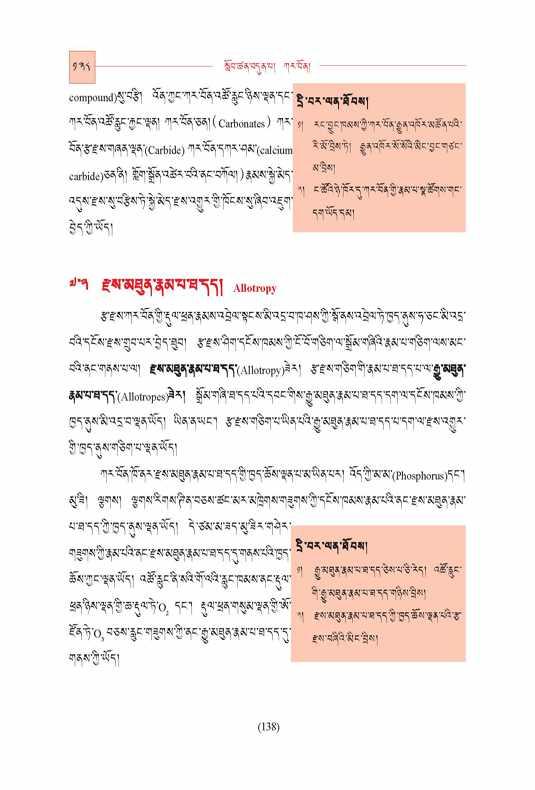 ༡༣༨ སློབ་ཚན་བདུན་པ། ཀར་བོན།
compound)སུ་བརྩི། འོན་ཀྱང་ཀར་བོན་འཚོ་རླུང་ཉིས་ལྡན་དང་
ཀར་བོན་འཚོ་རླུང་རྐྱང་ལྡན། ཀར་བོན་ཅན།( Carbonates ) ཀར་
བོན་རྩ་རྫས་གཞན་ལྡན་(Carbide) ཀར་བོན་དཀར་ཤམ་(calcium
carbide)ཅན་ནི། གློག་སྒྲོན་འཚེར་བའི་ནང་བཀོལ། ) རྣམས་སྐྱེ་མེད་
འདུས་རྫས་སུ་བརྩིས་ཏེ་སྐྱེ་མེད་རྫས་འགྱུར་གྱི་ཁོངས་སུ་ཞིབ་འཇུག་
བྱེད་ཀྱི་ཡོད།
དྲི་བར་ལན་ཐོབས།
༡། རང་བྱུང་ཁམས་ཀྱི་ཀར་བོན་རྒྱུན་འཁོར་མཚོན་པའི་
རི་མོ་བྲིས་ཏེ། རྒྱུན་འཁོར་སོ་སོའི་མིང་བྱང་གཙང་
མ་བྲིས།
༢། ང་ཚོའི་ཉེ་ཁོར་དུ་ཀར་བོན་གྱི་རྣམ་པ་སྣ་ཚོགས་གང་
དག་ཡོད་དམ།
༧་༢ རྫས་མཐུན་རྣམ་པ་ཐ་དད། Allotropy
རྩ་རྫས་ཀར་བོན་གྱི་རྡུལ་ཕྲན་རྣམས་འབྲེལ་སྟངས་མི་འདྲ་བ་ཁ་ཤས་ཀྱི་སྒོ་ནས་འབྲེལ་ཏེ་ཁྱད་ནུས་ཧ་ཅང་མི་འདྲ་
བའི་དངོས་རྫས་གྲུབ་པར་བྱེད་ཐུབ། རྩ་རྫས་ཤིག་དངོས་ཁམས་ཀྱི་ངོ་བོ་གཅིག་ལ་སྒྲོམ་གཞིའི་རྣམ་པ་གཅིག་ལས་མང་
བའི་ནང་གནས་པ་ལ། རྫས་མཐུན་རྣམ་པ་ཐ་དད་(Allotropy)ཟེར། རྩ་རྫས་གཅིག་གི་རྣམ་པ་ཐ་དད་པ་ལ་རྒྱུ་མཐུན་
རྣམ་པ་ཐ་དད་(Allotropes)ཟེར། སྒྲོམ་གཞི་ཐ་དད་པའི་དབང་གིས་རྒྱུ་མཐུན་རྣམ་པ་ཐ་དད་དག་ལ་དངོས་ཁམས་ཀྱི་
ཁྱད་ནུས་མི་འདྲ་བ་ལྡན་ཡོད། ཡིན་ནའང་། རྩ་རྫས་གཅིག་པ་ཡིན་པའི་རྒྱུ་མཐུན་རྣམ་པ་ཐ་དད་པ་དག་ལ་རྫས་འགྱུར་
གྱི་ཁྱད་ནུས་གཅིག་པ་ལྡན་ཡོད།
ཀར་བོན་ཁོ་ནར་རྫས་མཐུན་རྣམ་པ་ཐ་དད་ཀྱི་ཁྱད་ཆོས་ལྡན་པ་མ་ཡིན་པར། འོད་ཀྱི་མ་མ་(Phosphorus)དང་།
མུ་ཟི། ལྕགས། ལྕགས་རིགས་ཏིན་བཅས་ཚང་མར་མཁྲེགས་གཟུགས་ཀྱི་དངོས་ཁམས་རྣམ་པའི་ནང་རྫས་མཐུན་རྣམ་
པ་ཐ་དད་ཀྱི་ཁྱད་ནུས་ལྡན་ཡོད། དེ་ཙམ་མ་ཟད་མུ་ཟིར་གཤེར་
གཟུགས་ཀྱི་རྣམ་པའི་ནང་རྫས་མཐུན་རྣམ་པ་ཐ་དད་དུ་གནས་པའི་ཁྱད་
ཆོས་ཀྱང་ལྡན་ཡོད། འཚོ་རླུང་ནི་སའི་གོ་ལའི་རླུང་ཁམས་ནང་རྡུལ་
ཕྲན་ཉིས་ལྡན་གྱི་ཆ་རྡུལ་ཏེ་O₂ དང་། རྡུལ་ཕྲན་གསུམ་ལྡན་གྱི་ཨོ་
ཛོན་ཏེ་O₃ བཅས་རླུང་གཟུགས་ཀྱི་ནང་རྒྱུ་མཐུན་རྣམ་པ་ཐ་དད་དུ་
གནས་ཀྱི་ཡོད།
དྲི་བར་ལན་ཐོབས།
༡། རྒྱུ་མཐུན་རྣམ་པ་ཐ་དད་ཅེས་པ་ཅི་རེད། འཚོ་རླུང་
གི་རྒྱུ་མཐུན་རྣམ་པ་ཐ་དད་གཉིས་བྲིས།
༢། རྫས་མཐུན་རྣམ་པ་ཐ་དད་ཀྱི་ཁྱད་ཆོས་ལྡན་པའི་རྩ་
རྫས་བཞིའི་མིང་བྲིས།
(138)